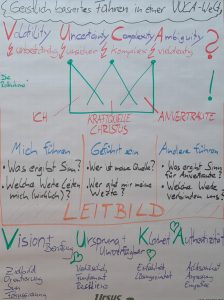 Geistlich basiertes Führen in einer VUCA-Welt
Volatility Uncertainty Complexity Ambiguity
unbeständig unsicher komplex vieldeutig
?
ICH KRAFTQUELLE CHRISTUS ANVERTRAUTE
Mich führen Geführt sein Andere führen
• Was ergibt Sinn? • Wer ist meine Quelle? • Was ergibt Sinn für Anvertraute?
• Welche Werte leiten mich (wirklich)? • Wer gibt mir meine Werte? • Welche Werte verbinden uns?
LEITBILD
Vision Ursprung Klarheit Authentizität
Berufung
Zielbild Verlässlich Einfachheit Achtsamkeit
Orientierung Fundament
Sinn Resilienz Empathie
Fokussierung